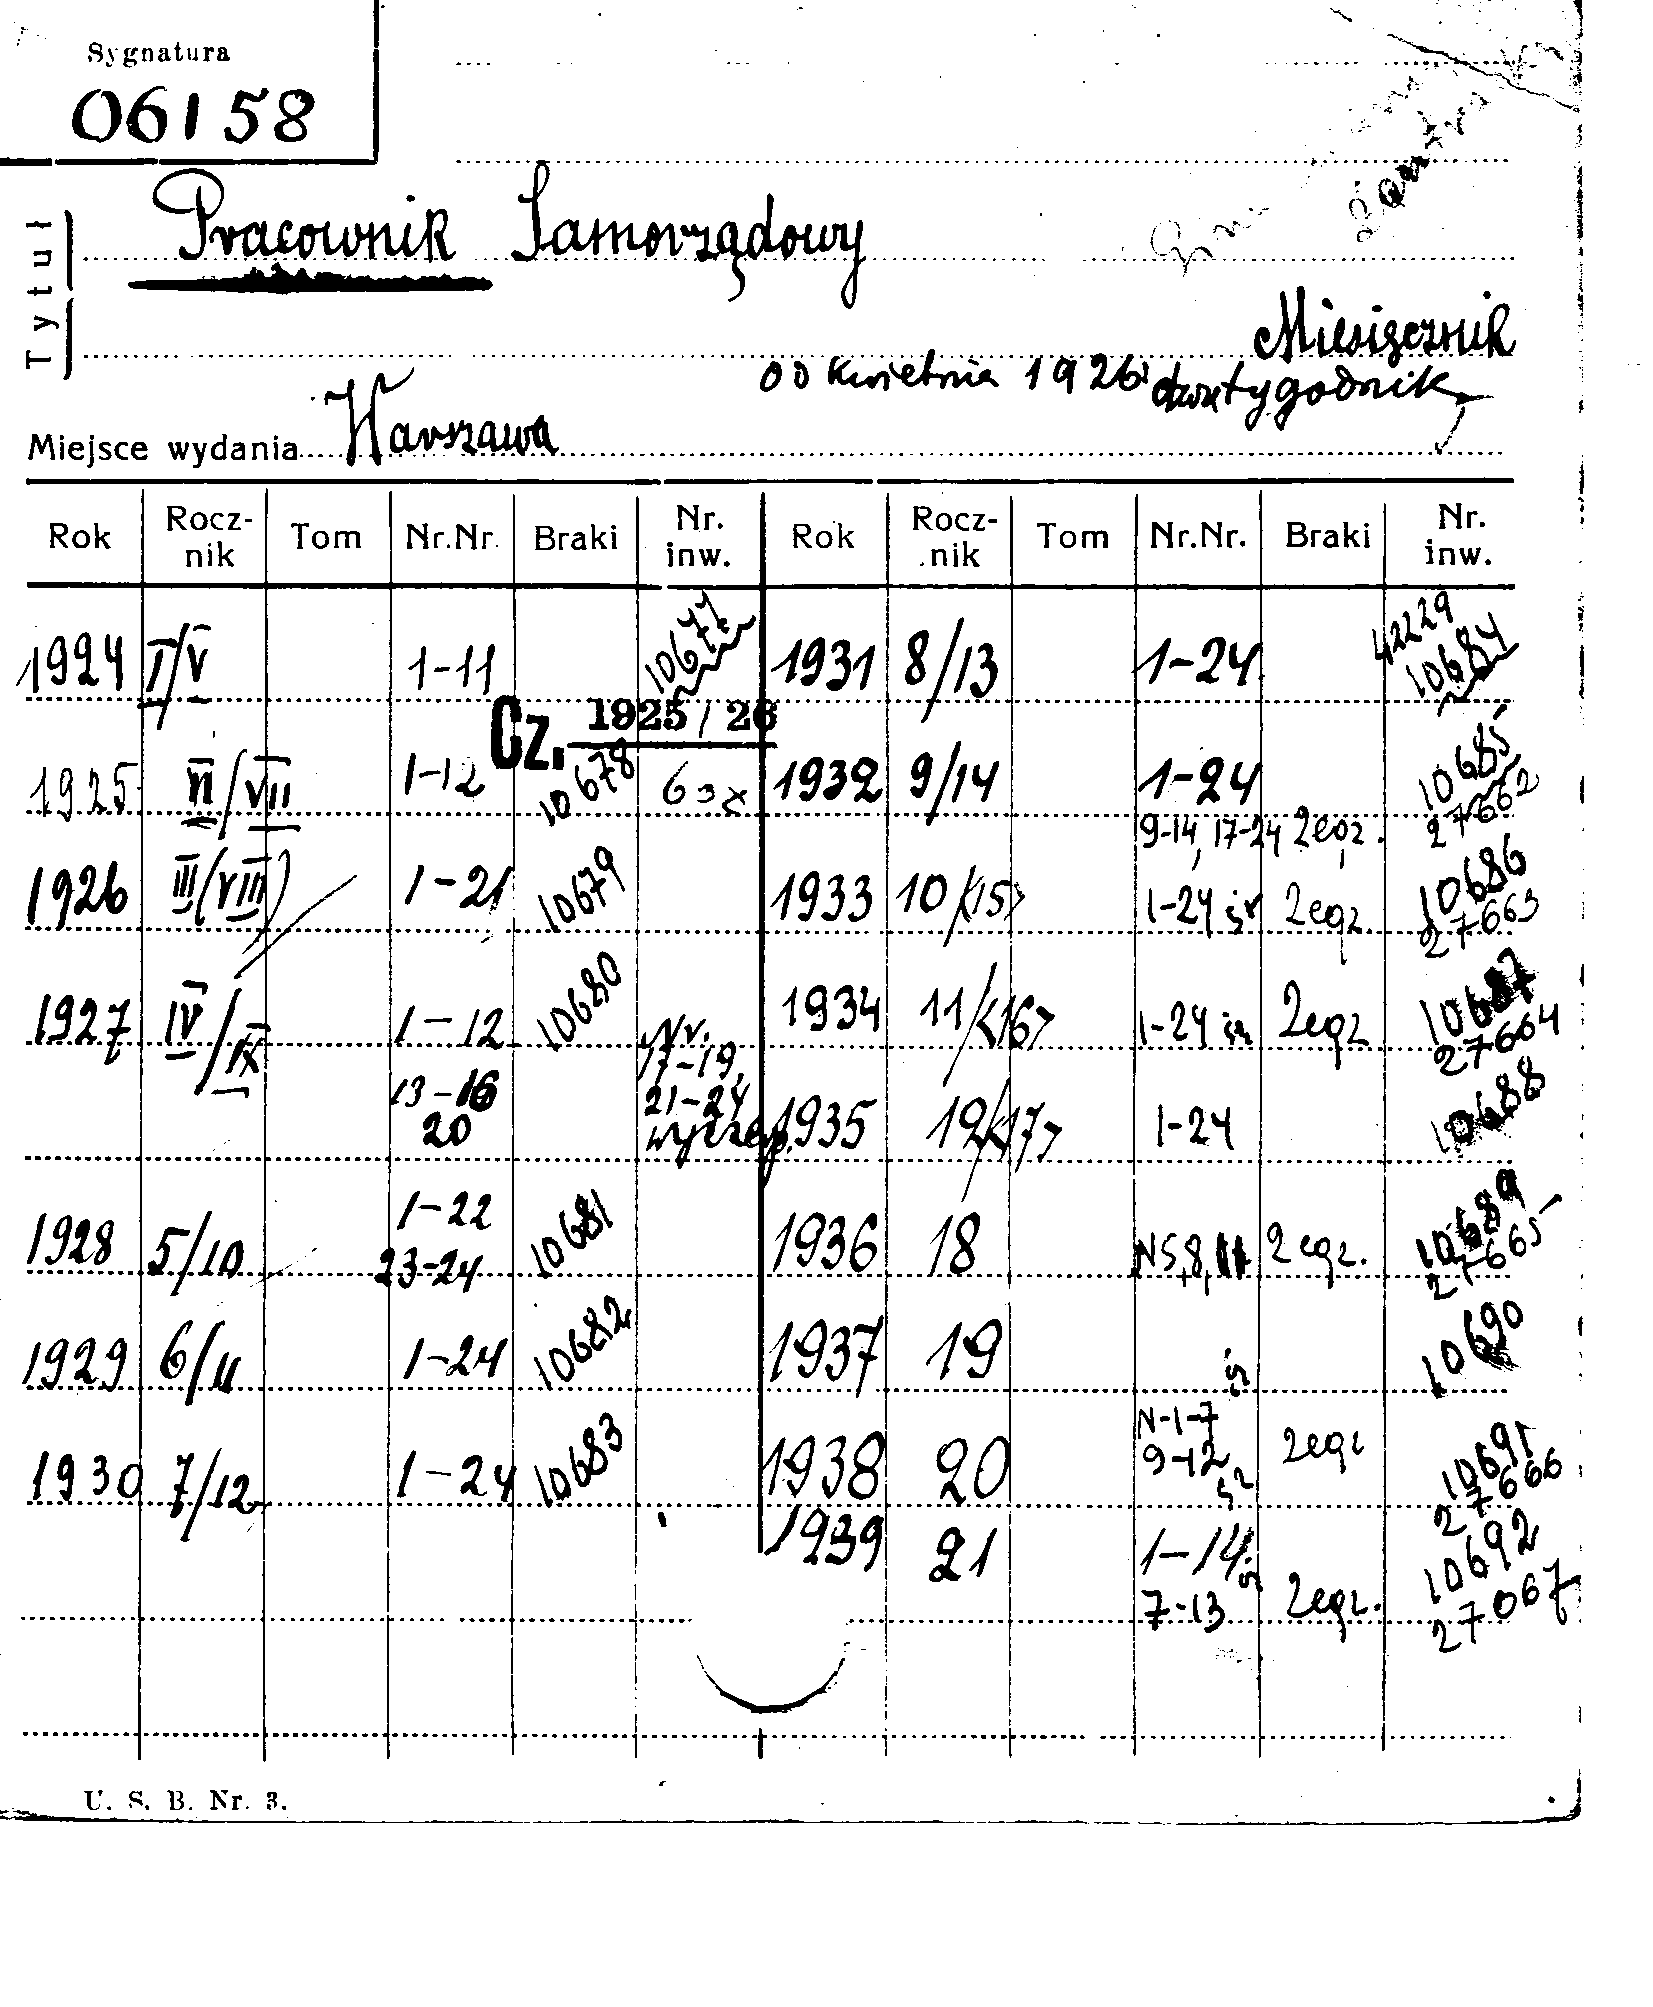 Sygnatura
06158
Tytuł
Pracownik Samorządowy
Miesięcznik
od kwietnia 1926 dwutygodnik
Miejsce wydania Warszawa
Rok Rocz-nik Tom Nr.Nr. Braki Nr. inw. Rok Rocz-nik Tom Nr.Nr. Braki Nr. inw.
1924 I/V 1-11 10677 1931 8/13 1-24 42229 10684
Cz. 1925/26
1925 VI/VII 1-12 10678 1932 9/14 1-24 10685
9-14, 17-24 2egz. 27662
1926 III/VIII) 1-21 10679 1933 10/<15> 1-24 2egz. 10686 27663
1927 IV/IX 1-12 10680 1934 11/<16> 1-24 2egz 10687 27664
13-16 20 Nr. 17-19, 21-24 wyczerp. 1935 12/<17> 1-24 10688
1928 5/10 1-22 23-24 10681 1936 18 N5,8,11 2 egz. 10689 27665
1929 6/11 1-24 10682 1937 19 10690
1930 7/12 1-24 10683 1938 20 N-1-7 9-12 2egz 10691 27666
1939 21 1-14 10692
7-13 2egz. 27067
U. S. B. Nr. 3.